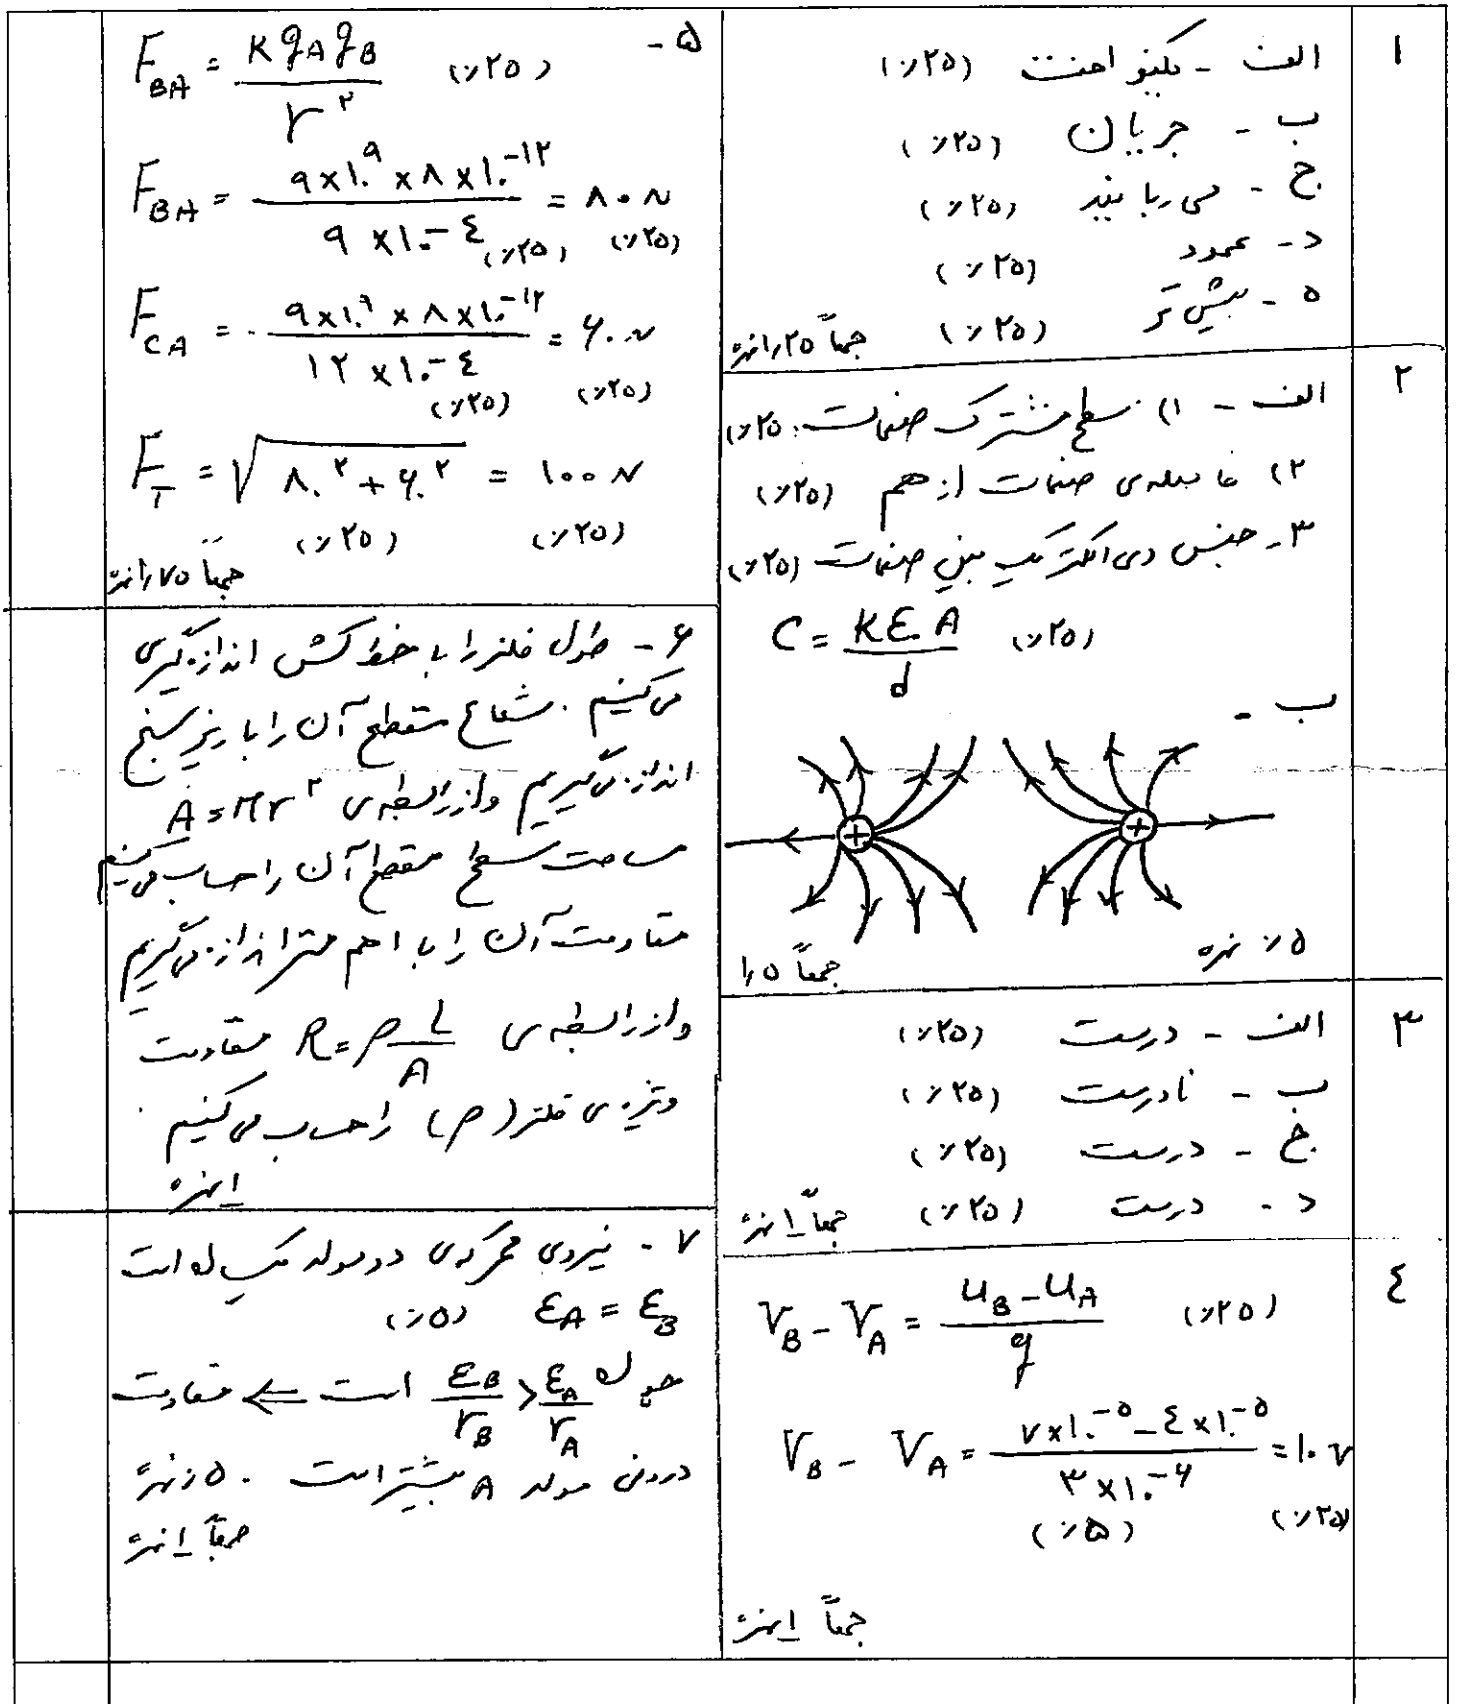 ۱
الف - یکنواخت (۰/۲۵)
ب - جریان (۰/۲۵)
ج - می ربایند (۰/۲۵)
د - عمود (۰/۲۵)
ه - بیش تر (۰/۲۵) جمعاً ۱/۲۵ نمره
۲
الف - ۱) سطح مشترک صفحات ۰/۲۵
۲) فاصله ی صفحات از هم (۰/۲۵)
۳- جنس دی الکتریک بین صفحات (۰/۲۵)
C = Kε₀A / d (۰/۲۵)
ب -
+ +
۰/۵ نمره
جمعاً ۱/۵
۳
الف - درست (۰/۲۵)
ب - نادرست (۰/۲۵)
ج - درست (۰/۲۵)
د - درست (۰/۲۵) جمعاً ۱ نمره
٤
V_B - V_A = (U_B - U_A) / q (۰/۲۵)
V_B - V_A = (۷×۱۰^-۵ - ٤×۱۰^-۵) / (۳×۱۰^-۶) = ۱۰ V
(۰/۵) (۰/۲۵)
جمعاً ۱ نمره
۵ -
F_BA = K q_A q_B / r^۲ (۰/۲۵)
F_BA = (۹×۱۰^۹ × ۸×۱۰^-۱۲) / (۹×۱۰^-٤) = ۸۰ N
(۰/۲۵) (۰/۲۵)
F_CA = (۹×۱۰^۹ × ۸×۱۰^-۱۲) / (۱۲×۱۰^-٤) = ۶۰ N
(۰/۲۵) (۰/۲۵)
F_T = √(۸۰^۲ + ۶۰^۲) = ۱۰۰ N
(۰/۲۵) (۰/۲۵)
جمعاً ۱/۷۵ نمره
۶ - طول فلز را با خط کش اندازه گیری
می کنیم . شعاع مقطع آن را با ریزسنج
اندازه می گیریم و از رابطه ی A = πr^۲
مساحت سطح مقطع آن را حساب می کنیم
مقاومت آن را با اهم متر اندازه می گیریم
و از رابطه ی R = ρ L/A مقاومت
ویژه ی فلز (ρ) را حساب می کنیم
۱ نمره
۷ - نیروی محرکه ی دو مولد یکسان است
ε_A = ε_B (۰/۵)
چون ε_B/r_B > ε_A/r_A است ⇐ مقاومت
درونی مولد A بیشتر است . ۰/۵ نمره
جمعاً ۱ نمره